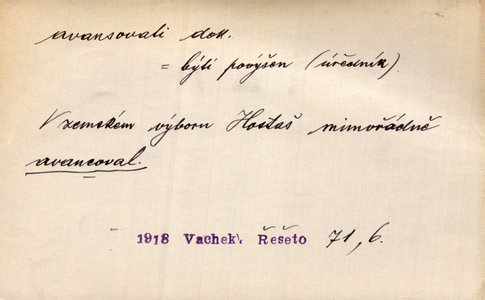 avansovati dok.
= býti povýšen (úředník).
V zemském výboru Hostaš mimořádně
avancoval.
1918 Vachek, Řešeto 71, 6.